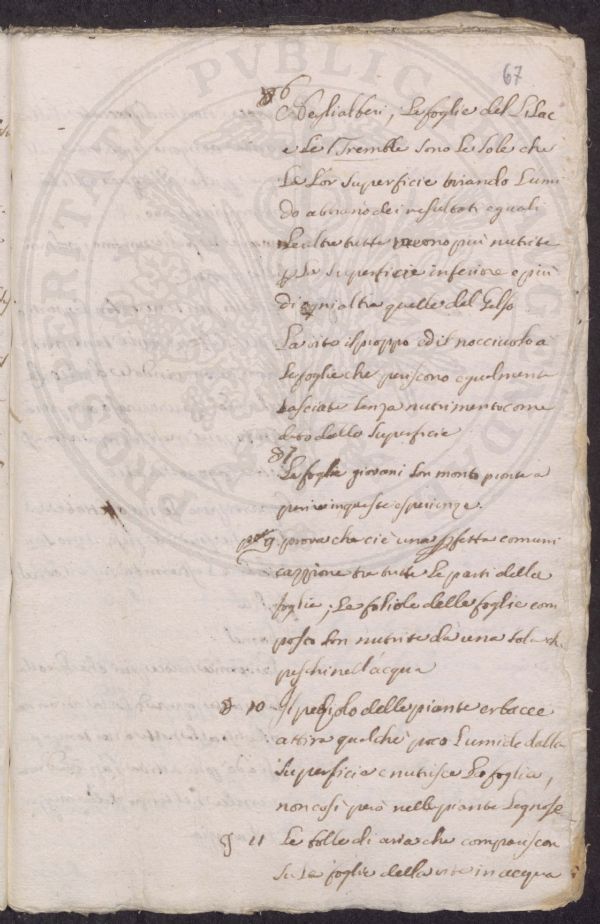 67
§ 6
Negli alberi, Le foglie del Lilac
e Le Tremble sono Le Sole che
La Lor Superficie tirando Lumi
do abbiano dei resultati eguali
Le altre tutte vengono più nutrite
p La Superficie inferiore e più
di ogni altra quelle del Gelso
La vite il pioppo ed il nocciuolo a
Le foglie che periscono egualmente
Lasciate Senza nutrimento come
dallo Superficie
§ 7
Le foglie giovani Son molto pronte a
perire in queste esperienze.
9. prova che ci è una pfetta comuni
cazzione tra tutte Le parti della
foglia; Le foliole delle foglie com
poste Son nutrite da una Sola ch.
peschi nell'acqua
§ 10 Il peziolo delle piante erbacee
attira qualche poco Lumido dalla
Superficie e nutrisce La foglia,
non così però nelle piante Legnose
§ 11 Le bolle di aria che compariscon
Su Le foglie della vite in acqua
PROSPERITATI PVBLICAE AVGENDAE